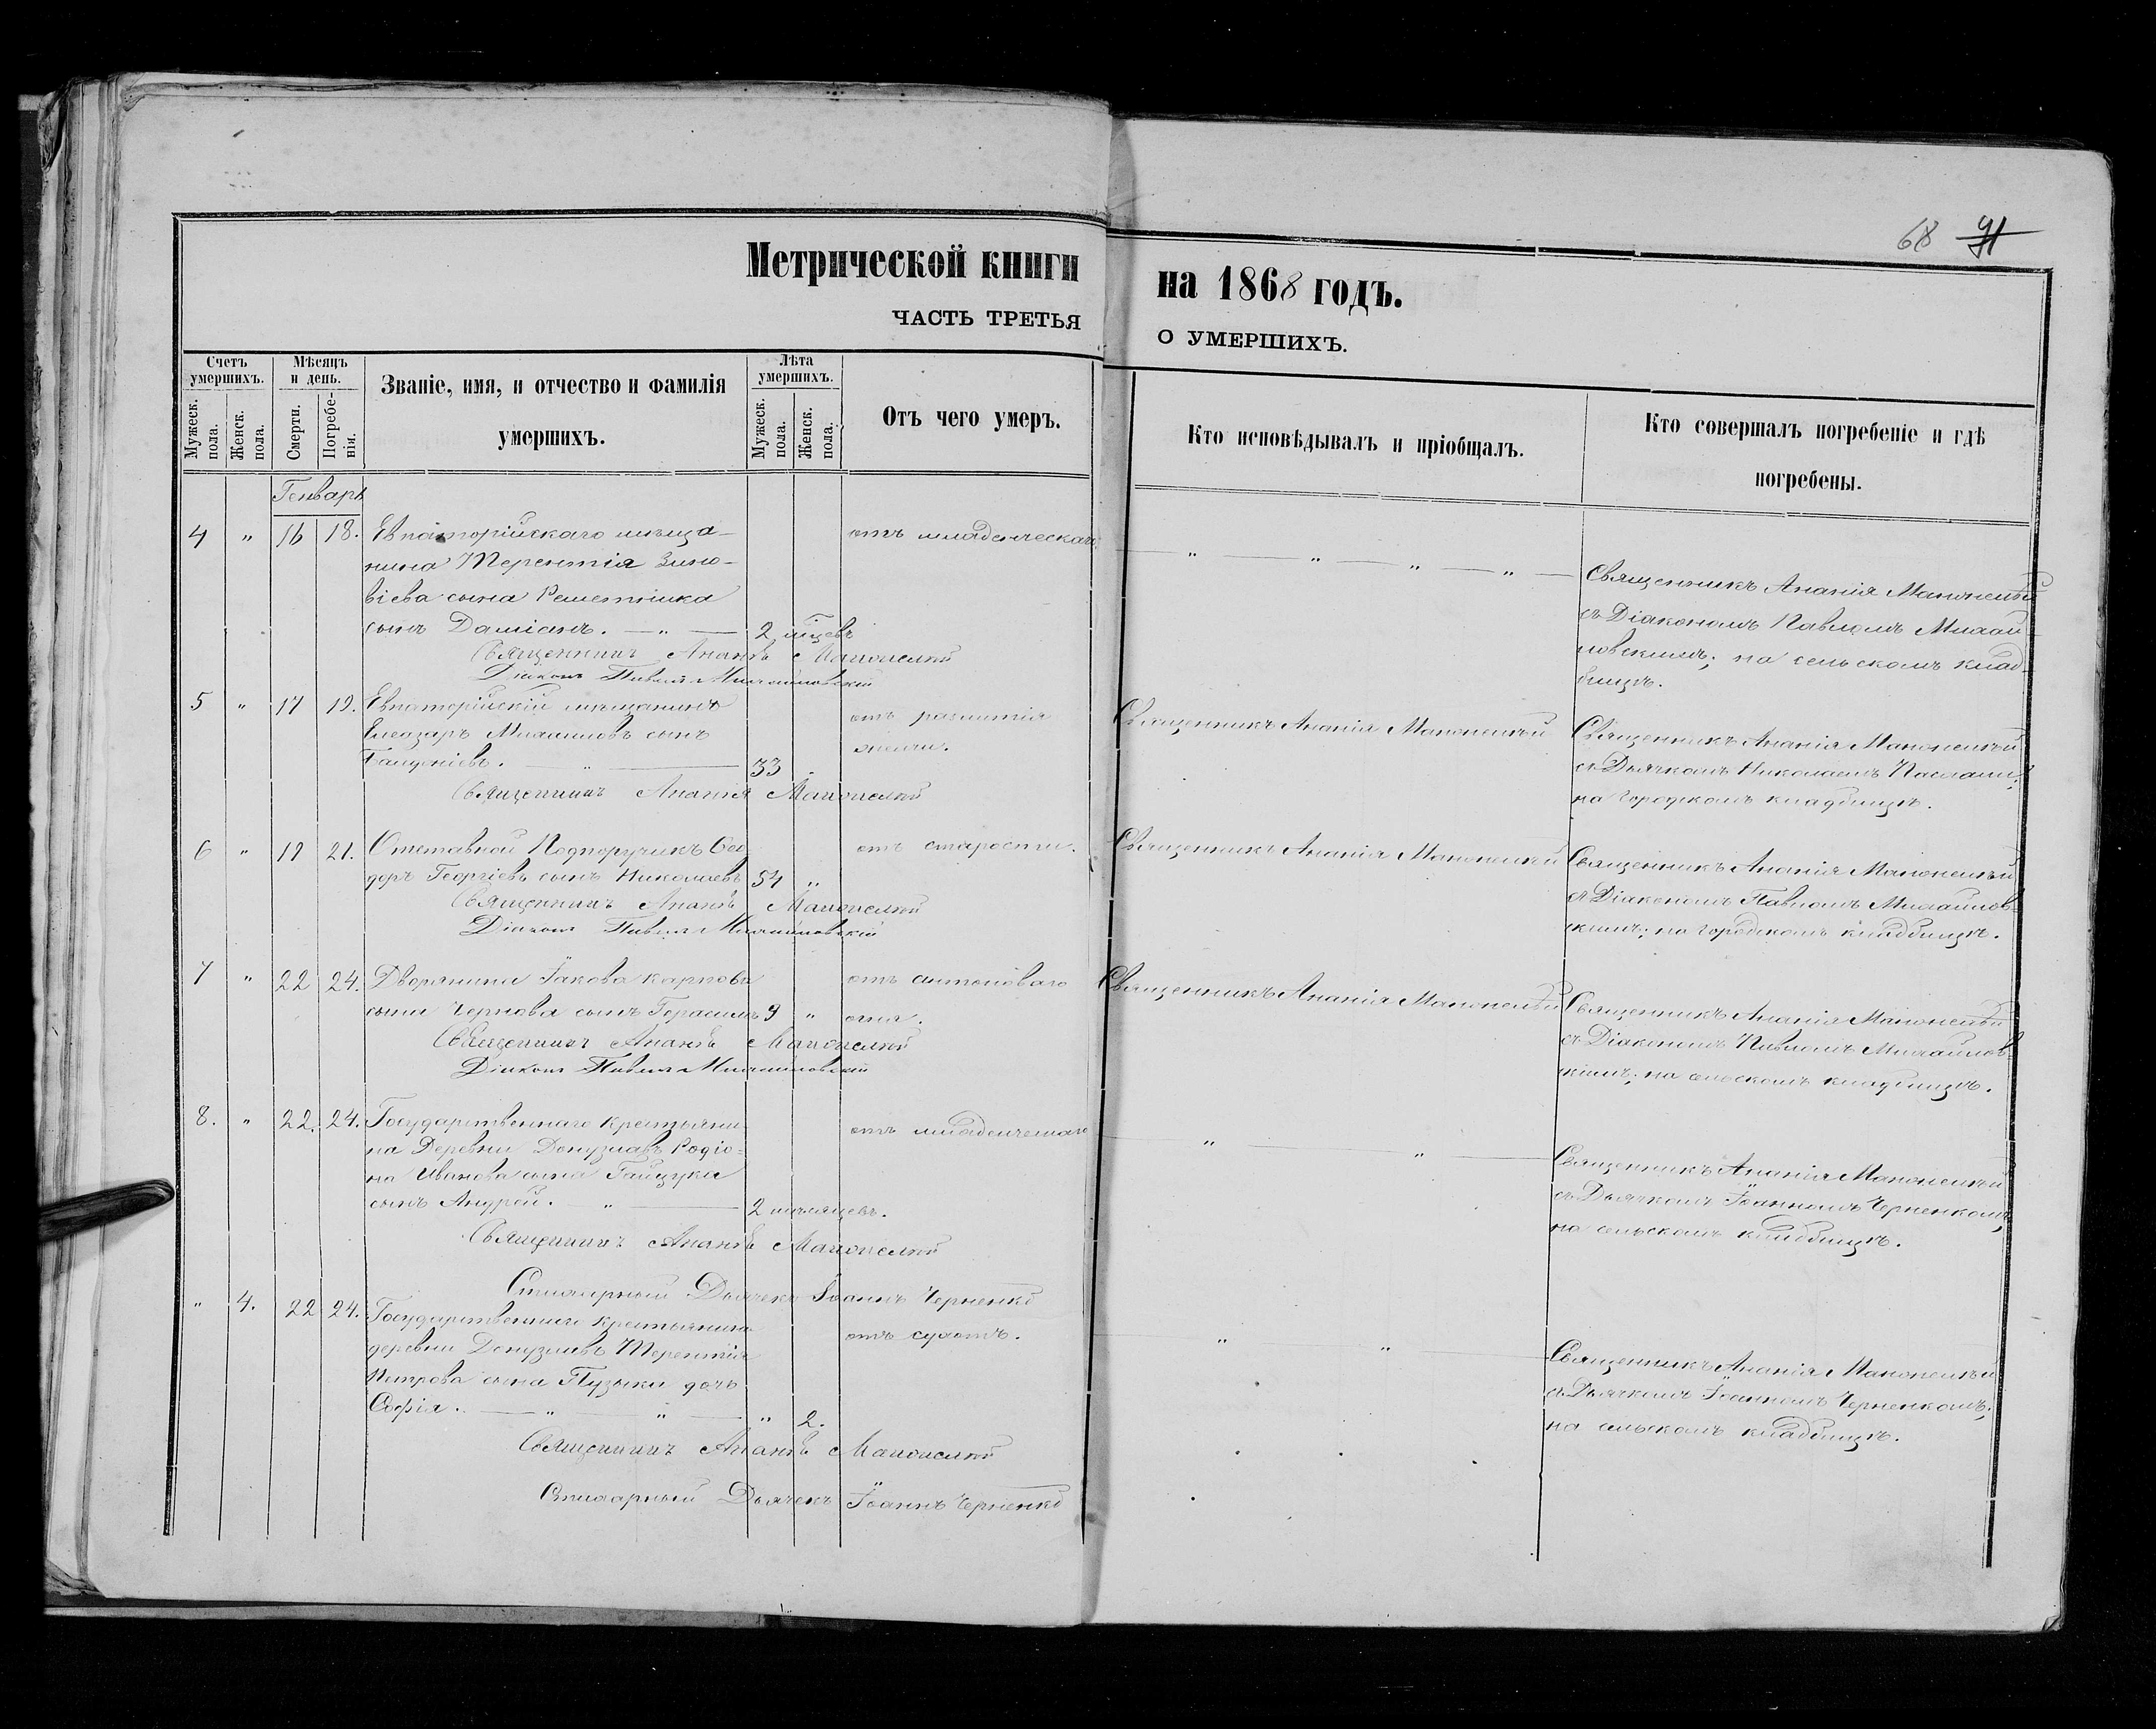 68 91
Метрической книги на 1868 годъ.
ЧАСТЬ ТРЕТЬЯ О УМЕРШИХЪ.
Счетъ умершихъ.
Мужеск. пола.
Женск. пола.
Мѣсяцъ и день.
Смерти.
Погребенія.
Званіе, имя, и отчество и фамилія
умершихъ.
Лѣта умершихъ.
Мужеск. пола.
Женск. пола.
Отъ чего умеръ.
Кто исповѣдывалъ и пріобщалъ.
Кто совершалъ погребеніе и гдѣ
погребены.
Генварь
4 " 16 18. Евпаторійскаго мѣща- отъ младенческаго
нина Терентія Зино-
віева сына Решетника
сынъ Даміанъ. — " — 2 мѣцевъ
" " " "
Священникъ Ананія
съ Діакономъ Павломъ Михай-
ловскимъ; на сельскомъ клад-
бищѣ.
Священникъ Ананія
Діаконъ Павелъ Михайловскій
5 " 17 19. Евпаторійскій мѣщанинъ отъ разлитія
Елеазаръ Михаиловъ сынъ желчи.
33
Священникъ Ананія
Священникъ Ананія
съ Дьячкомъ Николаемъ
на городскомъ кладбищѣ.
Священникъ Ананія
6 " 19 21. Отставной Подпоручикъ Ѳео- отъ старости.
доръ Георгіевъ сынъ Николаевъ 54 "
Священникъ Ананія
Священникъ Ананія
съ Діакономъ Павломъ Михайлов-
скимъ; на городскомъ кладбищѣ.
Священникъ Ананія
Діаконъ Павелъ Михайловскій
7 " 22 24. Дворянина Іакова Карпова отъ антонова
сына Чернова сынъ Герасимъ 9 " огня.
Священникъ Ананія
Священникъ Ананія
съ Діакономъ Павломъ Михайлов-
скимъ; на сельскомъ кладбищѣ.
Священникъ Ананія
Діаконъ Павелъ Михайловскій
8. " 22. 24. Государственнаго крестьяни- отъ младенческаго
на Деревни Донузлавъ Родіо-
на Иванова сына
сынъ Андрей. — " — 2 мѣсяцевъ.
" "
Священникъ Ананія
съ Дьячкомъ Іоанномъ Черненкомъ,
на сельскомъ кладбищѣ.
Священникъ Ананія
Дьячекъ Іоаннъ Черненко
" 4. 22 24. Государственнаго крестьянина отъ сухотъ.
деревни Донузлавъ Терентія
Петрова сына Пузыки дочь
Софія. — " — " — " 2.
" "
Священникъ Ананія
съ Дьячкомъ Іоанномъ Черненкомъ;
на сельскомъ кладбищѣ.
Священникъ Ананія
Дьячекъ Іоаннъ Черненко